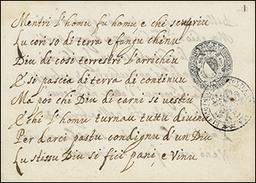 Mentri l'homu fu homu e chi scupriu
Lu cori sò di terra e fangu chinu
Diu di cosi terrestri l'arrichiu
E si pascia di terra di continuu
Ma poi chi Diu di carni si vestiu
E chi l'homu turnau tuttu divinu
Per darci pastu condignu d'un Diu
Lu stissu Diu si fici pani, e Vinu